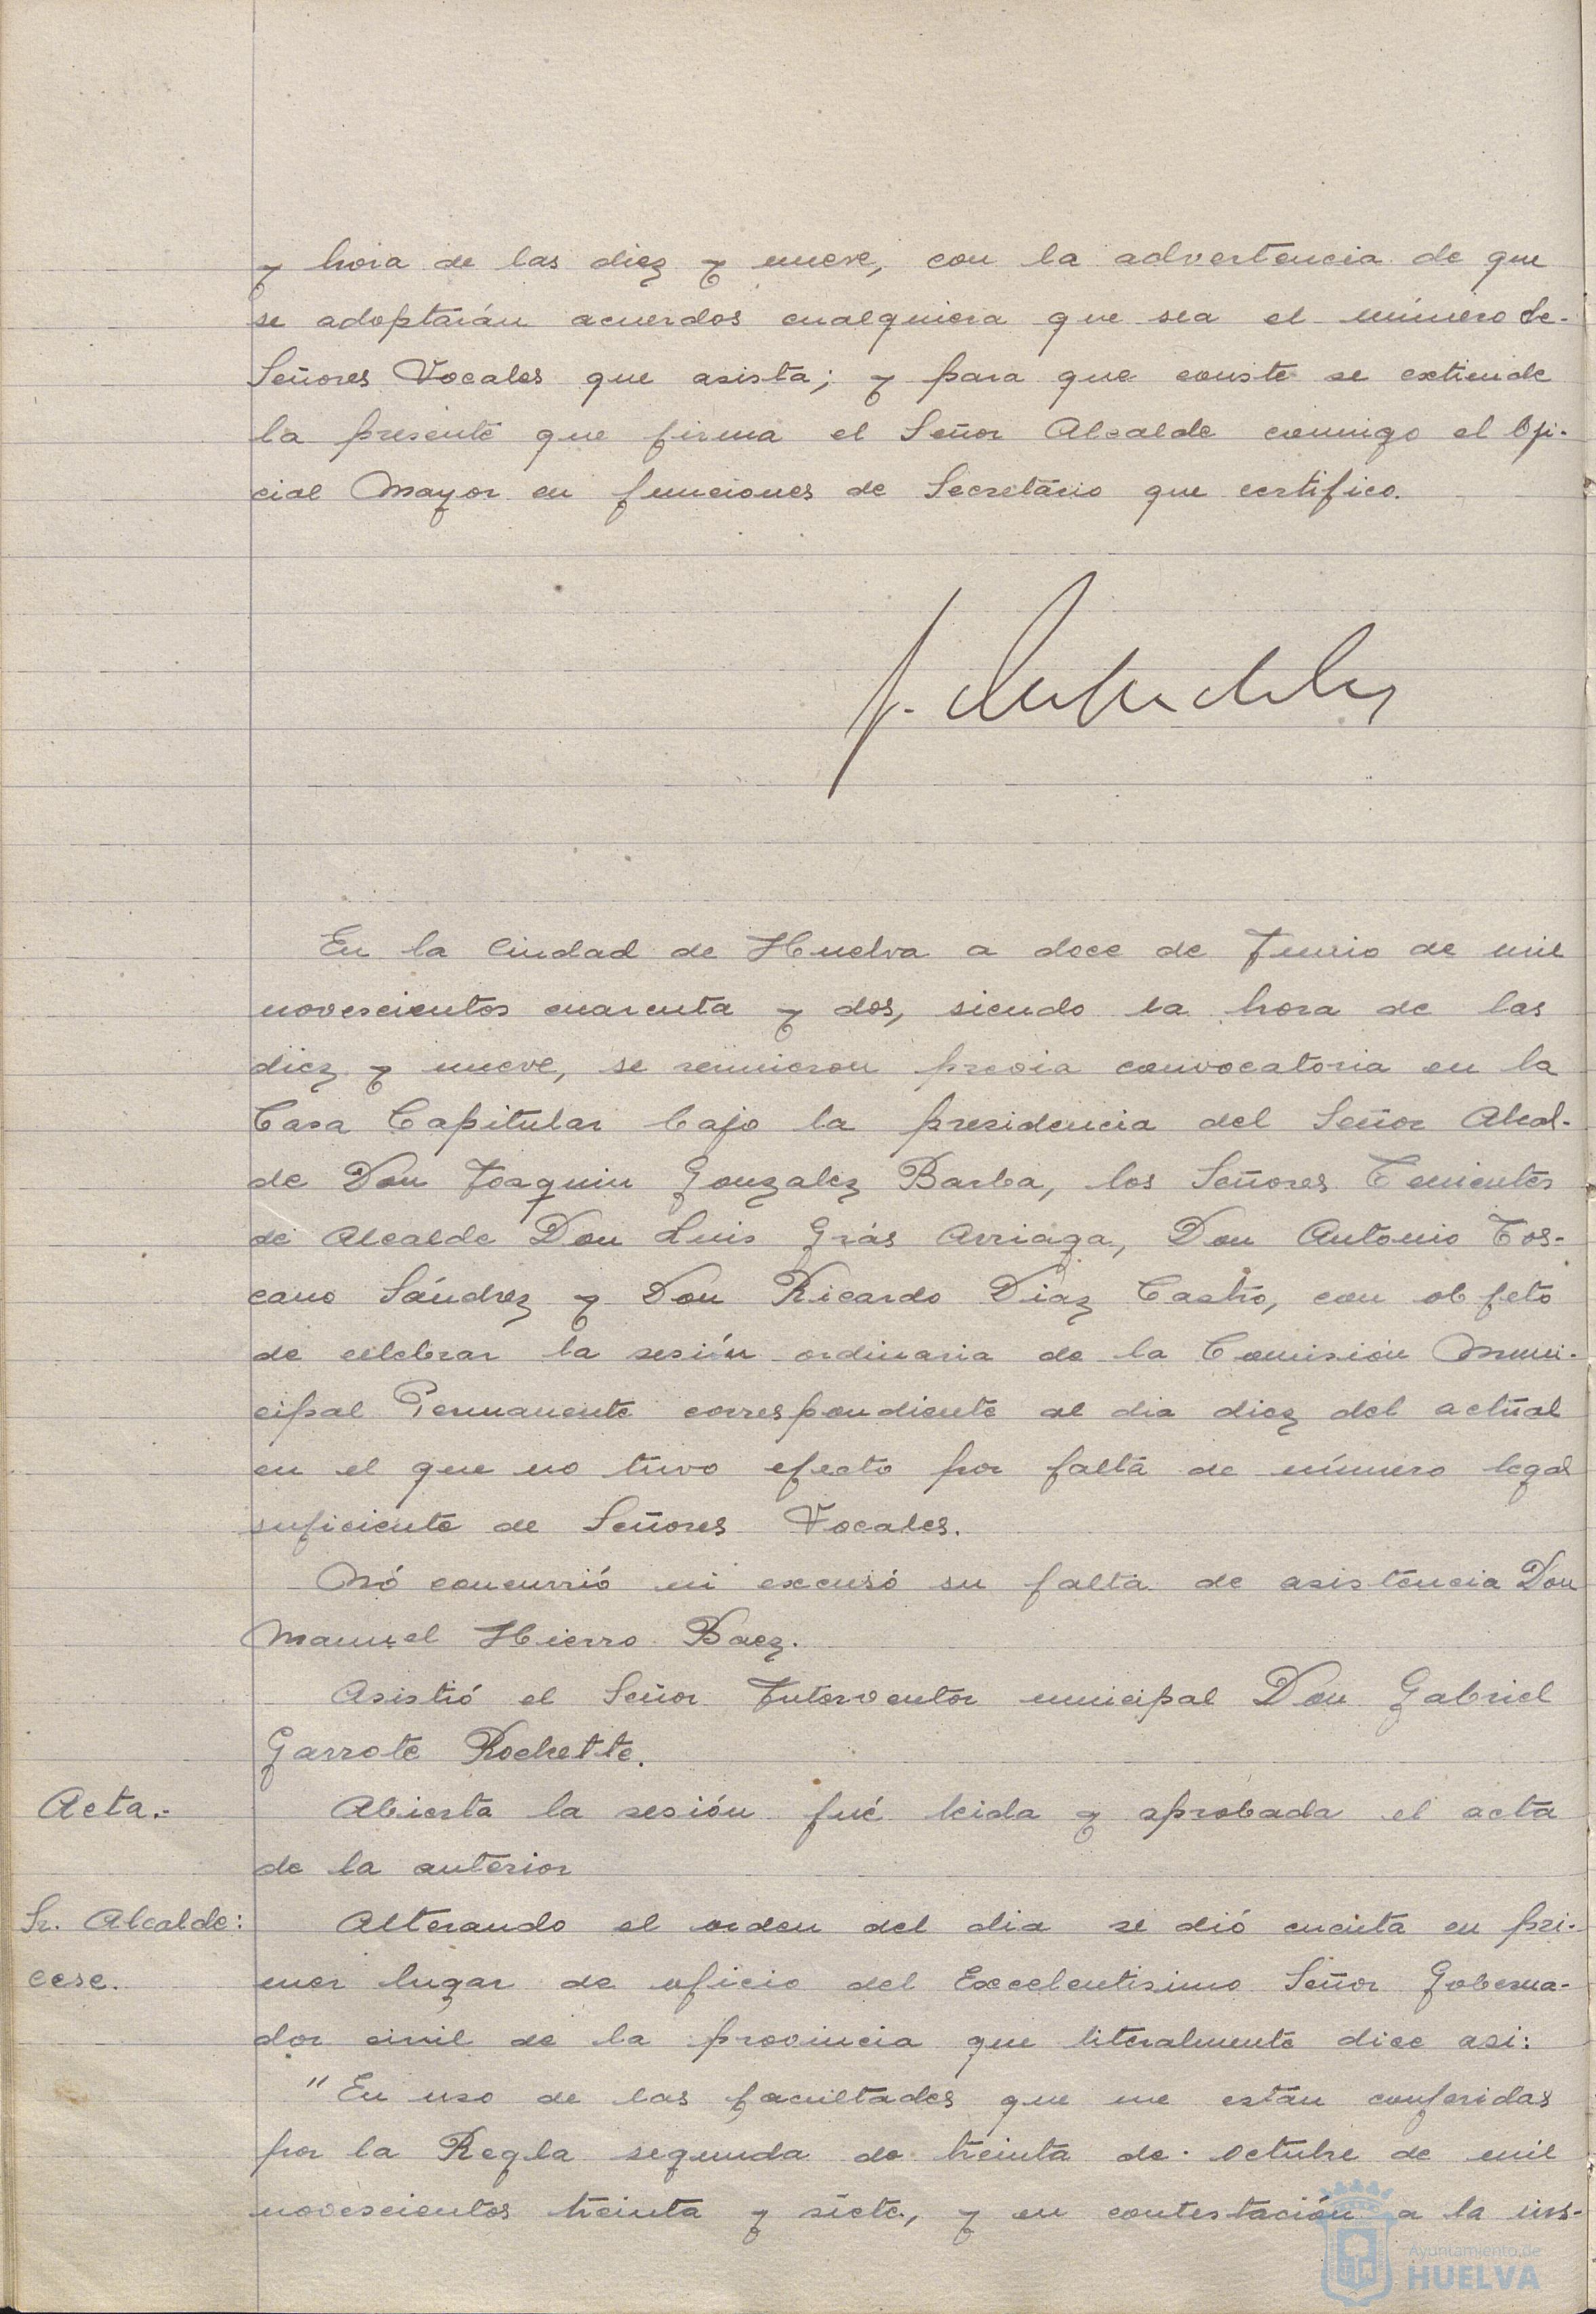 y hora de las diez y nueve, con la advertencia de que
se adoptarán acuerdos cualquiera que sea el número de
Señores Vocales que asista; y para que conste se extiende
la presente que firma el Señor Alcalde conmigo el Ofi-
cial Mayor en funciones de Secretario que certifico.
En la Ciudad de Huelva a doce de Junio de mil
novescientos cuarenta y dos, siendo la hora de las
diez y nueve, se reunieron previa convocatoria en la
Casa Capitular bajo la presidencia del Señor Alcal-
de Don Joaquin Gonzalez Barba, los Señores Tenientes
de Alcalde Don Luis Grás Arriaga, Don Antonio Tos-
cano Sánchez y Don Ricardo Diaz Castro, con objeto
de celebrar la sesión ordinaria de la Comisión Muni-
cipal Permanente correspondiente al dia diez del actual
en el que no tuvo efecto por falta de número legal
suficiente de Señores Vocales.
Nó concurrió ni excusó su falta de asistencia Don
Manuel Hierro Baez.
Asistió el Señor Interventor municipal Don Gabriel
Garrote Rochette.
Acta.- Abierta la sesión fué leida y aprobada el acta
de la anterior
Sr. Alcalde: Alterando el orden del dia se dió cuenta en pri-
cese. mer lugar de oficio del Excelentisimo Señor Goberna-
dor civil de la provincia que literalmente dice asi:
"En uso de las facultades que me están conferidas
por la Regla segunda de treinta de octubre de mil
novescientos treinta y siete, y en contestación a la ins-
Ayuntamiento de
HUELVA